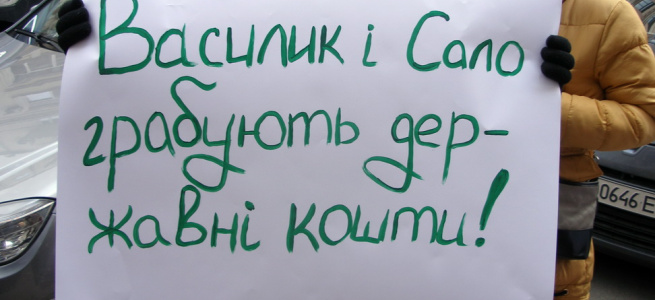 Василик і Сало
грабують дер-
жавні кошти!
0646 E